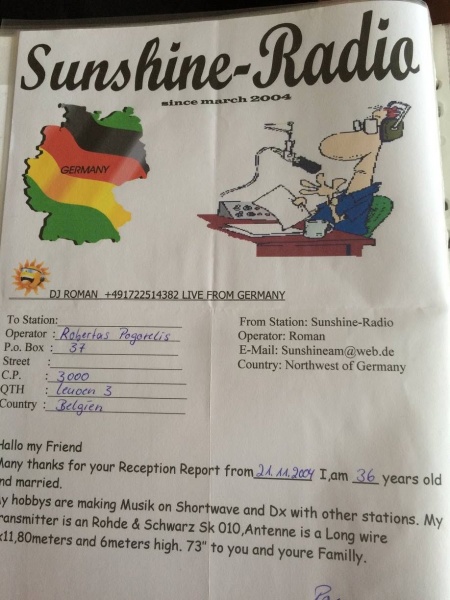 Sunshine-Radio
since march 2004
GERMANY
DJ ROMAN +491722514382 LIVE FROM GERMANY
To Station:
Operator : Robertas Pogorelis
P.o. Box : 37
Street :
C.P. : 3000
QTH : Leuven 3
Country : Belgien
From Station: Sunshine-Radio
Operator: Roman
E-Mail: Sunshineam@web.de
Country: Northwest of Germany
Hallo my Friend
Many thanks for your Reception Report from 21.11.2004 I,am 36 years old
nd married.
y hobbys are making Musik on Shortwave and Dx with other stations. My
ransmitter is an Rohde & Schwarz Sk 010,Antenne is a Long wire
x11,80meters and 6meters high. 73" to you and youre Familly.